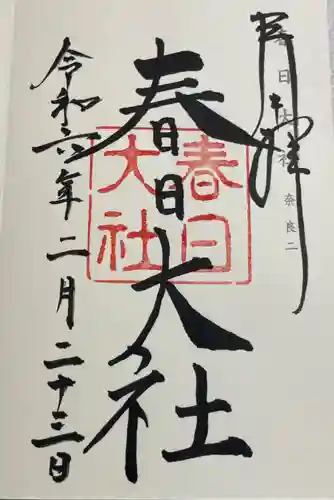 奉拝
春日大社 奈良二
春日大社
春日
大社
令和六年二月二十三日